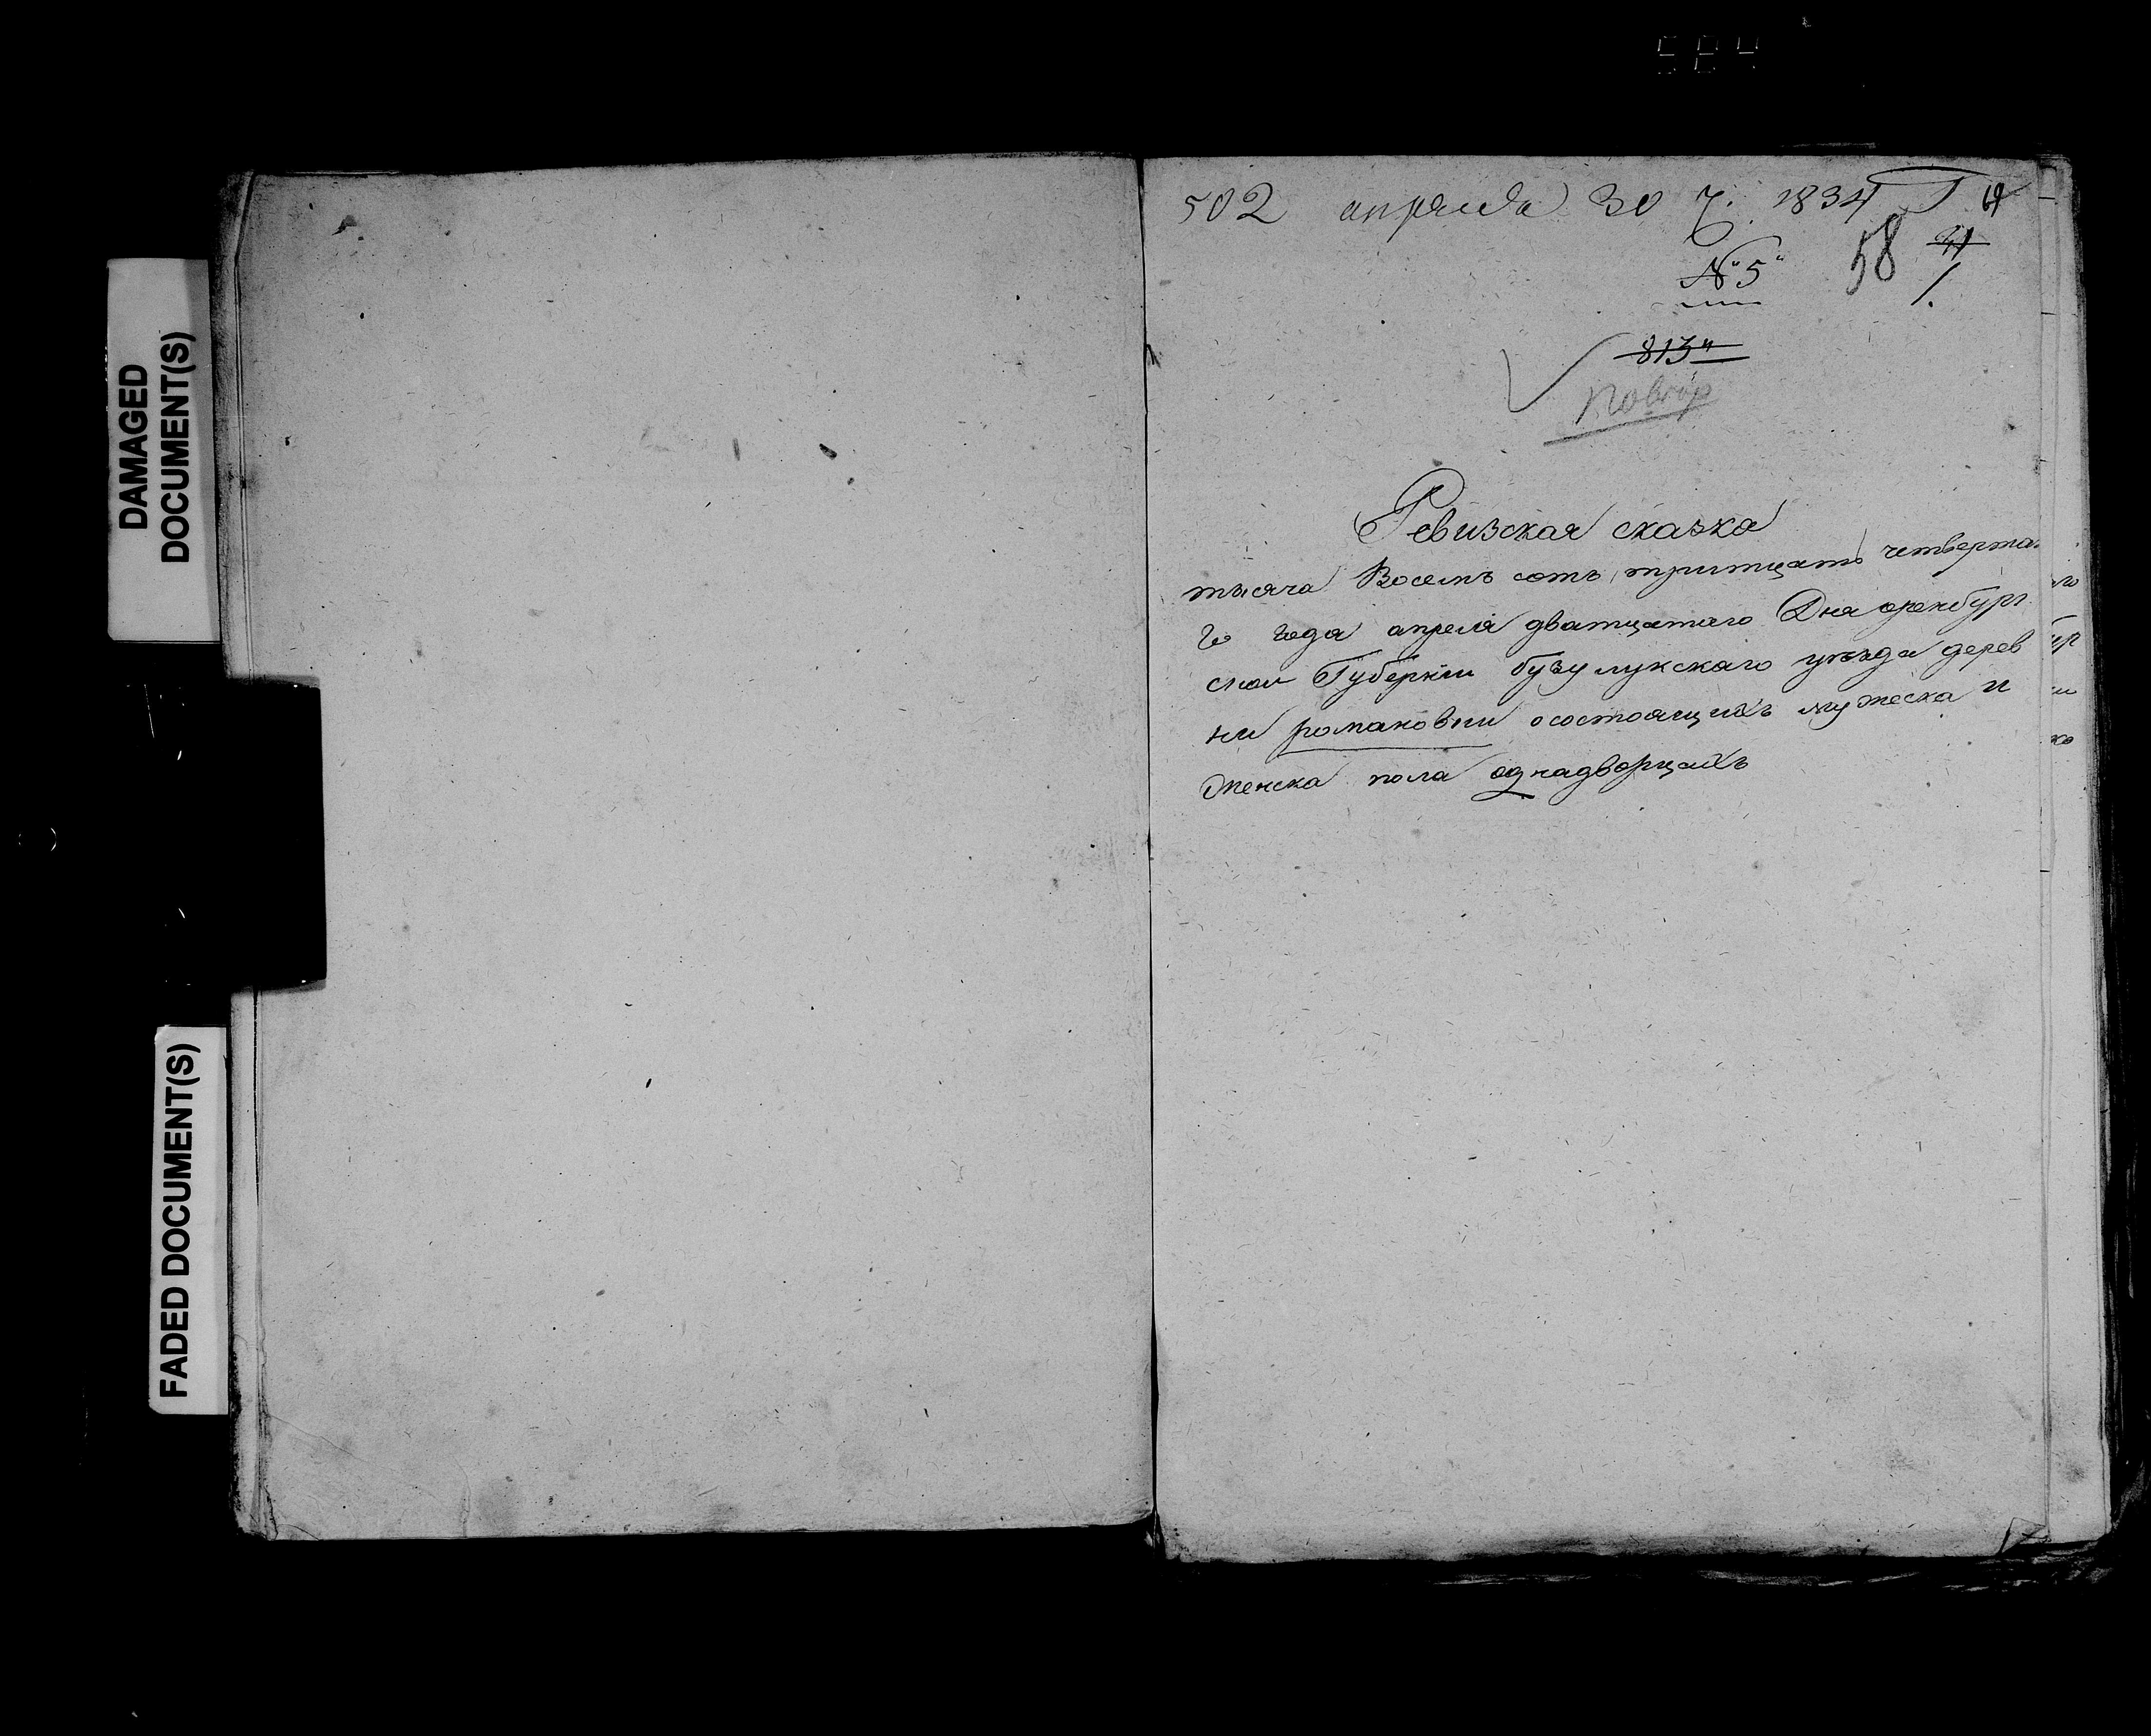 DAMAGED
DOCUMENT(S)
FADED DOCUMENT(S)
502 апреля 30 1834
№ 5
58
813
повтор
Ревизская сказка
тысяча Восемъ сотъ тритцать четверта
го года апреля дватцатаго Дня оренбург
скои Губерніи бузулукскаго уѣзда дерев
ни романовки о состоящихъ мужеска и
женска пола однадворцахъ